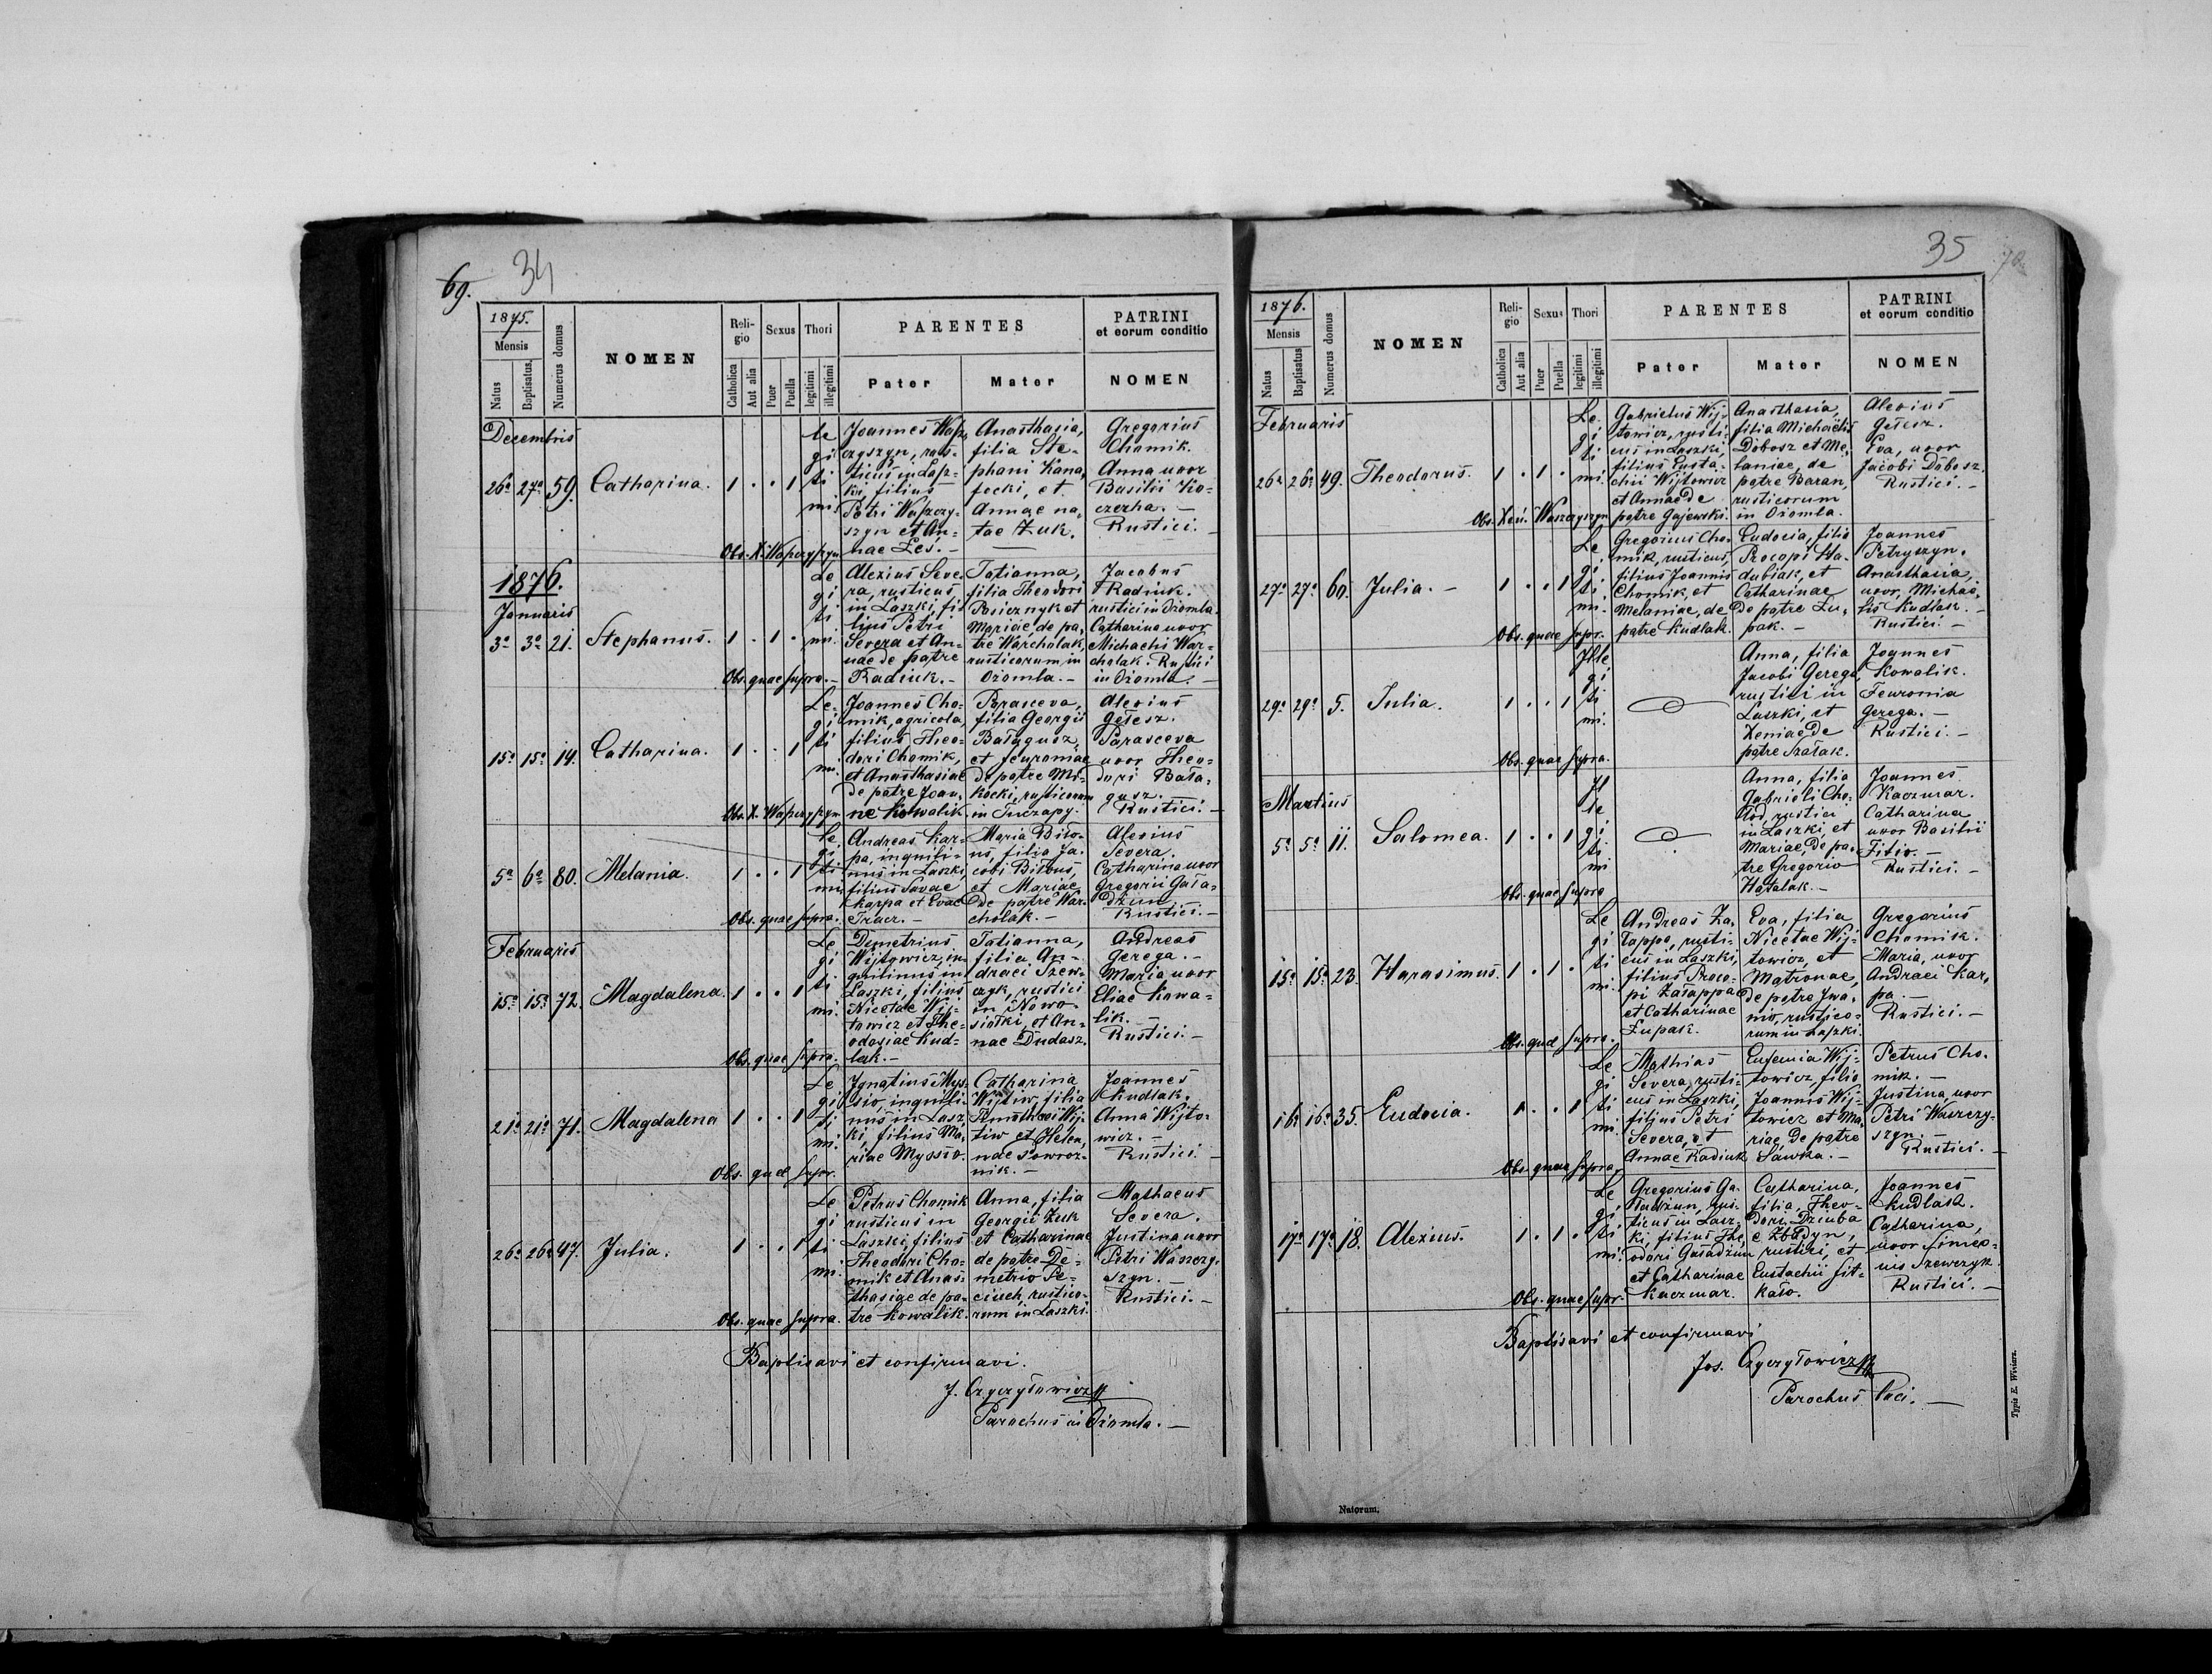 69.
34
1875.
Mensis
Natus
Baptisatus
Numerus domus
NOMEN
Reli-
gio
Sexus
Thori
Catholica
Aut alia
Puer
Puella
legitimi
illegitimi
PARENTES
Pater
Mater
PATRINI
et eorum conditio
NOMEN
Decembris
26ª 27ª 59. Catharina. 1 . . 1
Le
gi
ti
mi.
Joannes Wasz
czyszyn, rus-
ticus in Lasz-
ki, filius
Petri Waszczy-
szyn et An-
nae Leś. -
Anasthasia,
filia Ste-
phani Kana,
fecki, et
Annae na,
tae Żuk.
Gregorius
Chomik.
Anna uxor
Basilii Ko-
czerha. -
Rustici. -
Obs. X. Waszczyszyn
1876.
Januaris
3ª 3ª 21. Stephanus. 1 . 1 .
Le
gi
ti
mi.
Alexius Seve-
ra, rusticus
in Laszki, fi-
lius Petri
Severa et An-
nae de patre
Radiuk. -
Tatianna,
filia Theodori
Pasicznyk et
Mariae, de pa,
tre Warcholak,
rusticorum in
Ożomla. -
Jacobus
Radiuk.
rustici in Ożomla
Catharina uxor
Michaelis War-
cholak. Rustici
in Ożomla. -
Obs. quae supra. -
15ª 15ª 14. Catharina. 1 . . 1
Le-
gi
ti
mi.
Joannes Cho-
mik, agricola,
filius Theo-
dori Chomik,
et Anasthasiae
de patre Joan-
ne Kowalik.
Parasceva,
filia Georgii
Bałagusz,
et Feuroniae
de patre Mo-
kocki, rusticorum
in Tuczapy.
Alexius
Gełesz.
Parasceva
uxor Theo-
dori Bała-
gusz.
Rustici. -
Obs. X. Waszczyszyn
5ª 6ª 80. Melania. 1 . . 1
Le
gi
ti
mi.
Andreas Kar-
pa, inquili-
nus in Laszki,
filius Savae
Karpa et Evae
Tracz. -
Maria Biło-
us, filia Ja-
cobi Biłous,
et Mariae
de patre War-
cholak. -
Alexius
Severa
Catharina uxor
Gregorii Gała-
dżun
Rustici. -
Obs. quae supra.
Februaris
15ª 15ª 72. Magdalena. 1 . . 1
Le
gi
ti
mi.
Demetrius
Wijtowicz, in-
quilinus in
Laszki, filius
Nicetae Wij-
towicz et The-
odosiae Kud-
lak. -
Tatianna,
filia An-
draei Szew-
czyk, rustici
in Nowo-
siołki, et An-
nae Dudasz.
Andreas
Gerega. -
Maria uxor
Eliae Kowa-
lik. -
Rustici. -
Obs. quae supra.
21ª 21ª 71. Magdalena 1 . . 1
Le
gi
ti
mi.
Ignatius Mys-
sio, inquili-
nus in Lasz-
ki, filius Ma-
riae Myssio.
Catharina
Wijtiw, filia
Timothei Wij-
tiw et Helen,
nae Sowroz-
nik. -
Joannes
Kudlak.
Anna Wijto-
wicz. -
Rustici. -
Obs. quae supr.
26ª 26ª 47. Julia. 1 . . 1
Le
gi
ti
mi.
Petrus Chomik
rusticus in
Laszki, filius
Theodori Cho-
mik et Anas-
thasiae de pa-
tre Kowalik.
Anna, filia
Georgii Żuk
et Catharinae
de patre De-
metrio Pe-
ciuch, rustico-
rum in Laszki.
Mathaeus
Severa.
Justina uxor
Petri Waszczy-
szyn. -
Rustici. -
Obs. quae supra.
Baptisavi et confirmavi.
J. Czyryłowicz
Parochus in Ożomla. -
35
70
1876.
Mensis
Natus
Baptisatus
Numerus domus
NOMEN
Reli-
gio
Sexus
Thori
Catholica
Aut alia
Puer
Puella
legitimi
illegitimi
PARENTES
Pater
Mater
PATRINI
et eorum conditio
NOMEN
Februaris
26ª 26ª 49. Theodorus. 1 . 1 .
Le
gi
ti
mi.
Gabrielus Wij-
towicz, rusti-
cus in Laszki,
filius Eusta-
chii Wijtowicz
et Annae de
patre Gajewski.
Anasthasia,
filia Michaelis
Dobosz et Me-
laniae, de
patre Baran,
rusticorum
in Ożomla.
Alexius
Gełesz.
Eva, uxor
Jacobi Dobosz.
Rustici. -
Obs. Xen. Waszczyszyn
27ª 27ª 60. Julia. - 1 . . 1
Le
gi
ti
mi.
Gregorius Cho-
mik, rusticus,
filius Joannis
Chomik, et
Melaniae, de
patre Kudlak.
Eudocia, filia
Procopi Ha-
dubiak, et
Catharinae
de patre Łu-
pak. -
Joannes
Petryszyn.
Anasthasia,
uxor, Michae-
lis Kudlak. -
Rustici -
Obs. quae supr.
29ª 29ª 5. Julia. 1 . . 1
Ille
gi
ti
mi.
Anna, filia
Jacobi Gerega,
rustici in
Laszki, et
Xeniae de
patre Szałak.
Joannes
Kowalik.
Feuronia
Gerega. -
Rustici. -
Obs. quae supra.
Martius
5ª 5ª 11. Salomea. 1 . . 1
Il
le
gi
ti
mi
Anna, filia
Gabrieli Cho-
łod, rustici
in Laszki, et
Mariae, de pa-
tre Gregorio
Hałalak. -
Joannes
Kaczmar.
Catharina
uxor Basilii
Fitio. -
Rustici. -
Obs. quae supra
15ª 15ª 23. Harasimus. 1 . 1 .
Le
gi
ti
mi.
Andreas Za-
łappa, rusti-
cus in Laszki,
filius Proco-
pi Załappa
et Catharinae
Łupak.
Eva, filia
Nicetae Wij-
towicz, et
Matronae,
de patre Iwa-
nio, rustico-
rum in Laszki.
Gregorius
Chomik.
Maria, uxor
Andraei Kar-
pa. -
Rustici. -
Obs. quae supra.
16ª 16ª 35. Eudocia. 1 . . 1
Le
gi
ti
mi.
Mathias
Severa, rusti-
cus in Laszki,
filius Petri
Severa, et
Annae Radiuk
Eufemia Wij-
towicz, filia
Joannis Wij-
towicz et Ma-
riae, de patre
Sawka. -
Petrus Cho-
mik. -
Justina, uxor
Petri Waszczy-
szyn. -
Rustici. -
Obs. quae supra
17ª 17ª 18. Alexius. 1 . 1 .
Le
gi
ti
mi.
Gregorius Ga-
ładżun, rus-
ticus in Lasz-
ki, filius The-
odori Gaładżun
et Catharinae
Kaczmar.
Catharina,
filia, Theo-
dori Dziuba
e Zbadyn,
rustici, et
Eustachii Fit-
kało.
Joannes
Kudlak.
Catharina,
uxor Simeo-
nis Szewczyk.
Rustici. -
Obs. quae supr.
Baptisavi et confirmavi
Jos. Czyryłowicz
Parochus loci. -
Typis E. Winiarz.
Natorum.